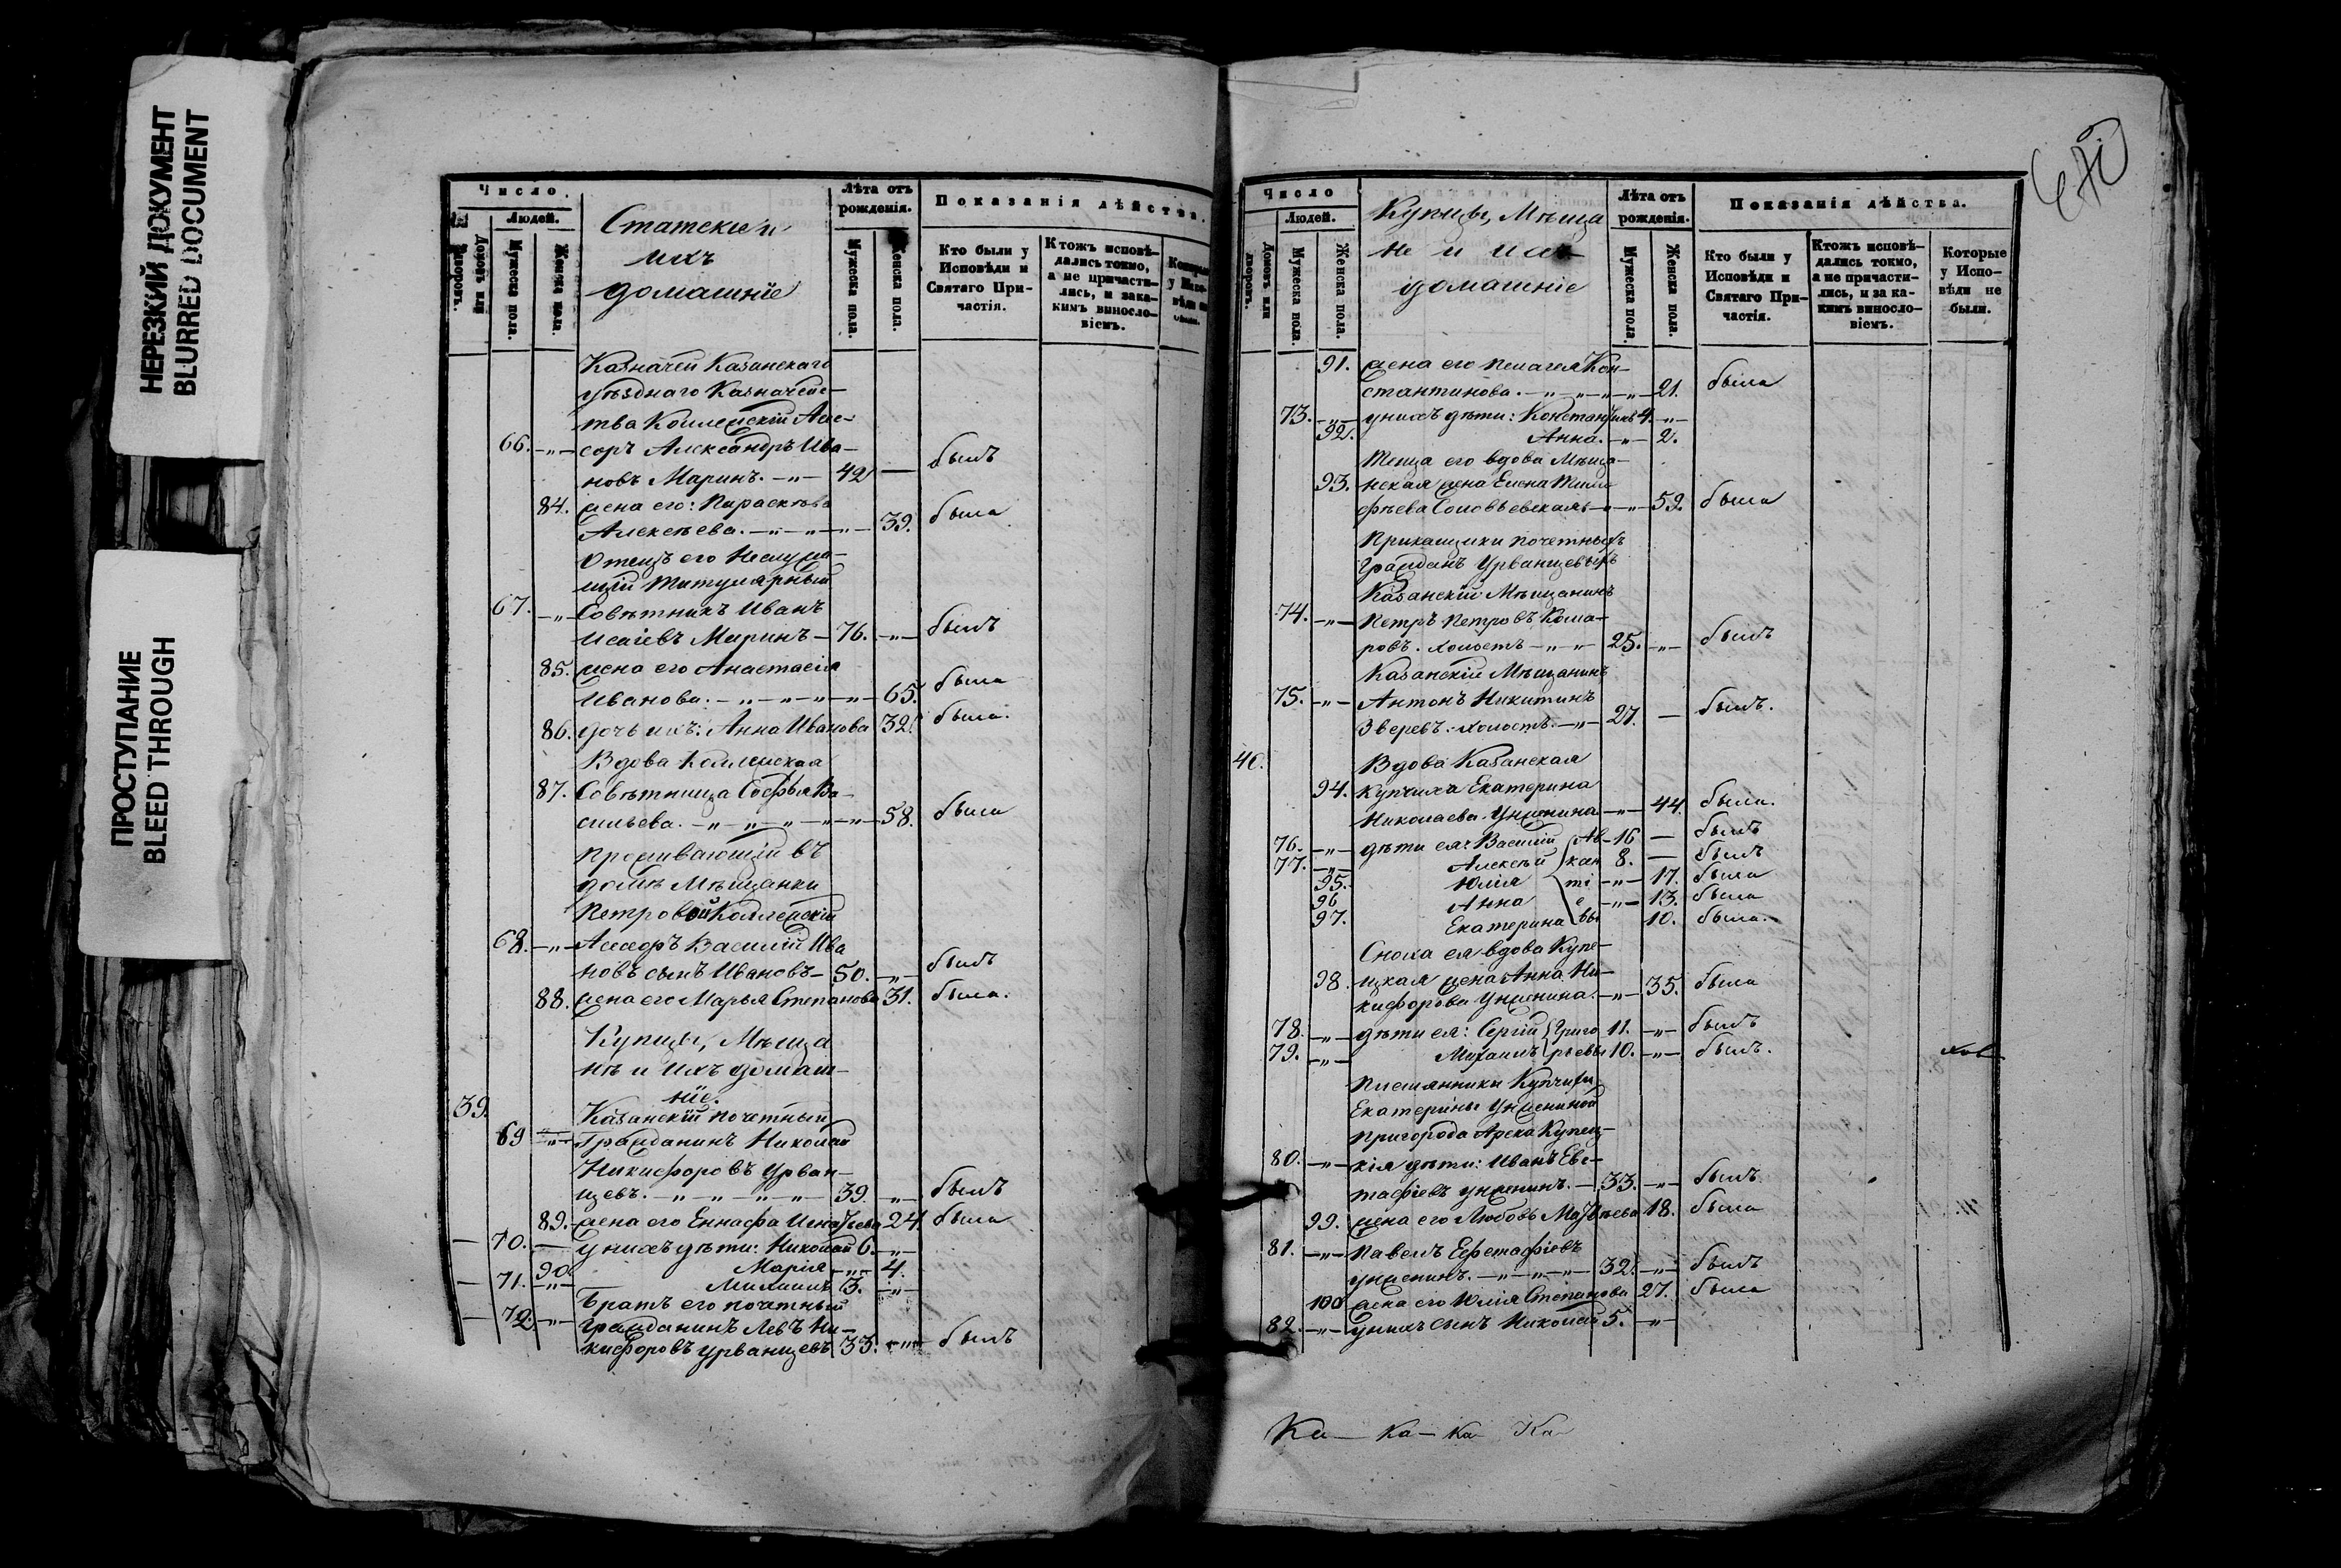 НЕРЕЗКИЙ ДОКУМЕНТ
BLURRED DOCUMENT
ПРОСТУПАНИЕ
BLEED THROUGH
Число.
Людей.
Домовъ или дворовъ.
Мужеска пола.
Женска пола.
Статскіе и
ихъ
домашніе
Лѣта отъ
рожденія.
Мужеска пола.
Женска пола.
Показанія дѣйства.
Кто были у
Исповѣди и
Святаго При-
частія.
Ктожъ исповѣ-
дались токмо,
а не причасти-
лись, и зака-
кимъ виносло-
віемъ.
Казначей Казанскаго
уѣзднаго Казначей-
тва Коллежскій Асе-
66. -„- соръ Александръ Ива-
новъ Маринъ. -„- 42 — былъ
84. жена его: Параскѣва
Алексѣева. -„- -„- -„- 39. была
Отецъ его Неслужа-
щій Титулярный
67. -„- Совѣтникъ Иванъ
Исаіевъ Маринъ - 76. -„- былъ
85. жена его Анастасія
Иванова. -„- -„- -„- 65. была
86. дочь ихъ: Анна Иванова 32. была.
Вдова Коллежская
87. Совѣтница Софья Ва-
сильева. -„- -„- -„- 58. была
Проживающій въ
домѣ Мѣщанки
Петровой Коллежскій
68. -„- Асесоръ Василій Ива
новъ сынъ Ивановъ - 50. -„- былъ
88. жена его Марья Степанова 31. была.
Купцы, Мѣща
не и ихъ домаш-
ніе.
39. Казанскій почетный
69 -„- Гражданинъ Николай
Никифоровъ Урван-
цевъ. -„- -„- -„- 39. -„- былъ
89. жена его Еннафа Игнатьева 24. была
70. — у нихъ дѣти: Николай 6. -„-
90. Марія -„- 4.
71. -„- Михаилъ 3. -„-
72. -„- Братъ его почетный
Гражданинъ Левъ Ни-
кифоровъ Урванцевъ 33. -„- былъ
Число
Людей.
Домовъ или дворовъ.
Мужеска пола.
Женска пола.
Купцы, Мѣща
не и ихъ
домашніе
Лѣта отъ
рожденія.
Мужеска пола.
Женска пола.
Показанія дѣйства.
Кто были у
Исповѣди и
Святаго При-
частія.
Ктожъ исповѣ-
дались токмо,
а не причасти-
лись, и за ка-
кимъ виносло-
віемъ.
Которые
у Испо-
вѣди не
были.
91. жена его Пелагея Кон-
стантинова. -„- -„- -„- 21. была
73. -„- у нихъ дѣти: Константинъ 4. -„-
92. Анна. -„- 2.
Теща его вдова Мѣща-
93. нская жена Елена Тимо
фѣева Соловьевская -„- 59. была
Прикащики почетныхъ
Гражданъ Урванцевыхъ
Казанскій Мѣщанинъ
74. -„- Петръ Петровъ Кома-
ровъ. холостъ -„- -„- 25. -„- былъ
Казанскій Мѣщанинъ
75. -„- Антонъ Никитинъ
Зверевъ. холостъ. -„- 27. — былъ.
40. Вдова Казанская
94. Купчиха Екатерина
Николаева Унженина -„- 44. была.
76. -„- дѣти ея: Василій Ав- 16 — былъ
77. -„- Алексѣй кан 8. — былъ
95. Юлія ті -„- 17. была
96 Анна е -„- 13. была
97. Екатерина вы 10. была.
Сноха ея вдова Купе-
98. цкая жена Анна Ни-
кифорова Унженина. -„- 35. была
78. -„- дѣти ея: Сергій Григо 11. -„- былъ
79. -„- Михаилъ рьевы 10. -„- былъ.
Племянники Купчихи
Екатерины Унжениной
Пригорода Арска Купец-
80. -„- кія дѣти: Иванъ Евс-
тафіевъ Унженинъ. - 33. -„- былъ
99. жена его Любовь Матвѣева 18. была
81. -„- Павелъ Ефстафіевъ
Унженинъ. -„- -„- 32. -„- былъ
100 жена его Юлія Степанова 27. была
82. -„- у нихъ сынъ Николай 5. -„-
Ка- ка- ка Ка